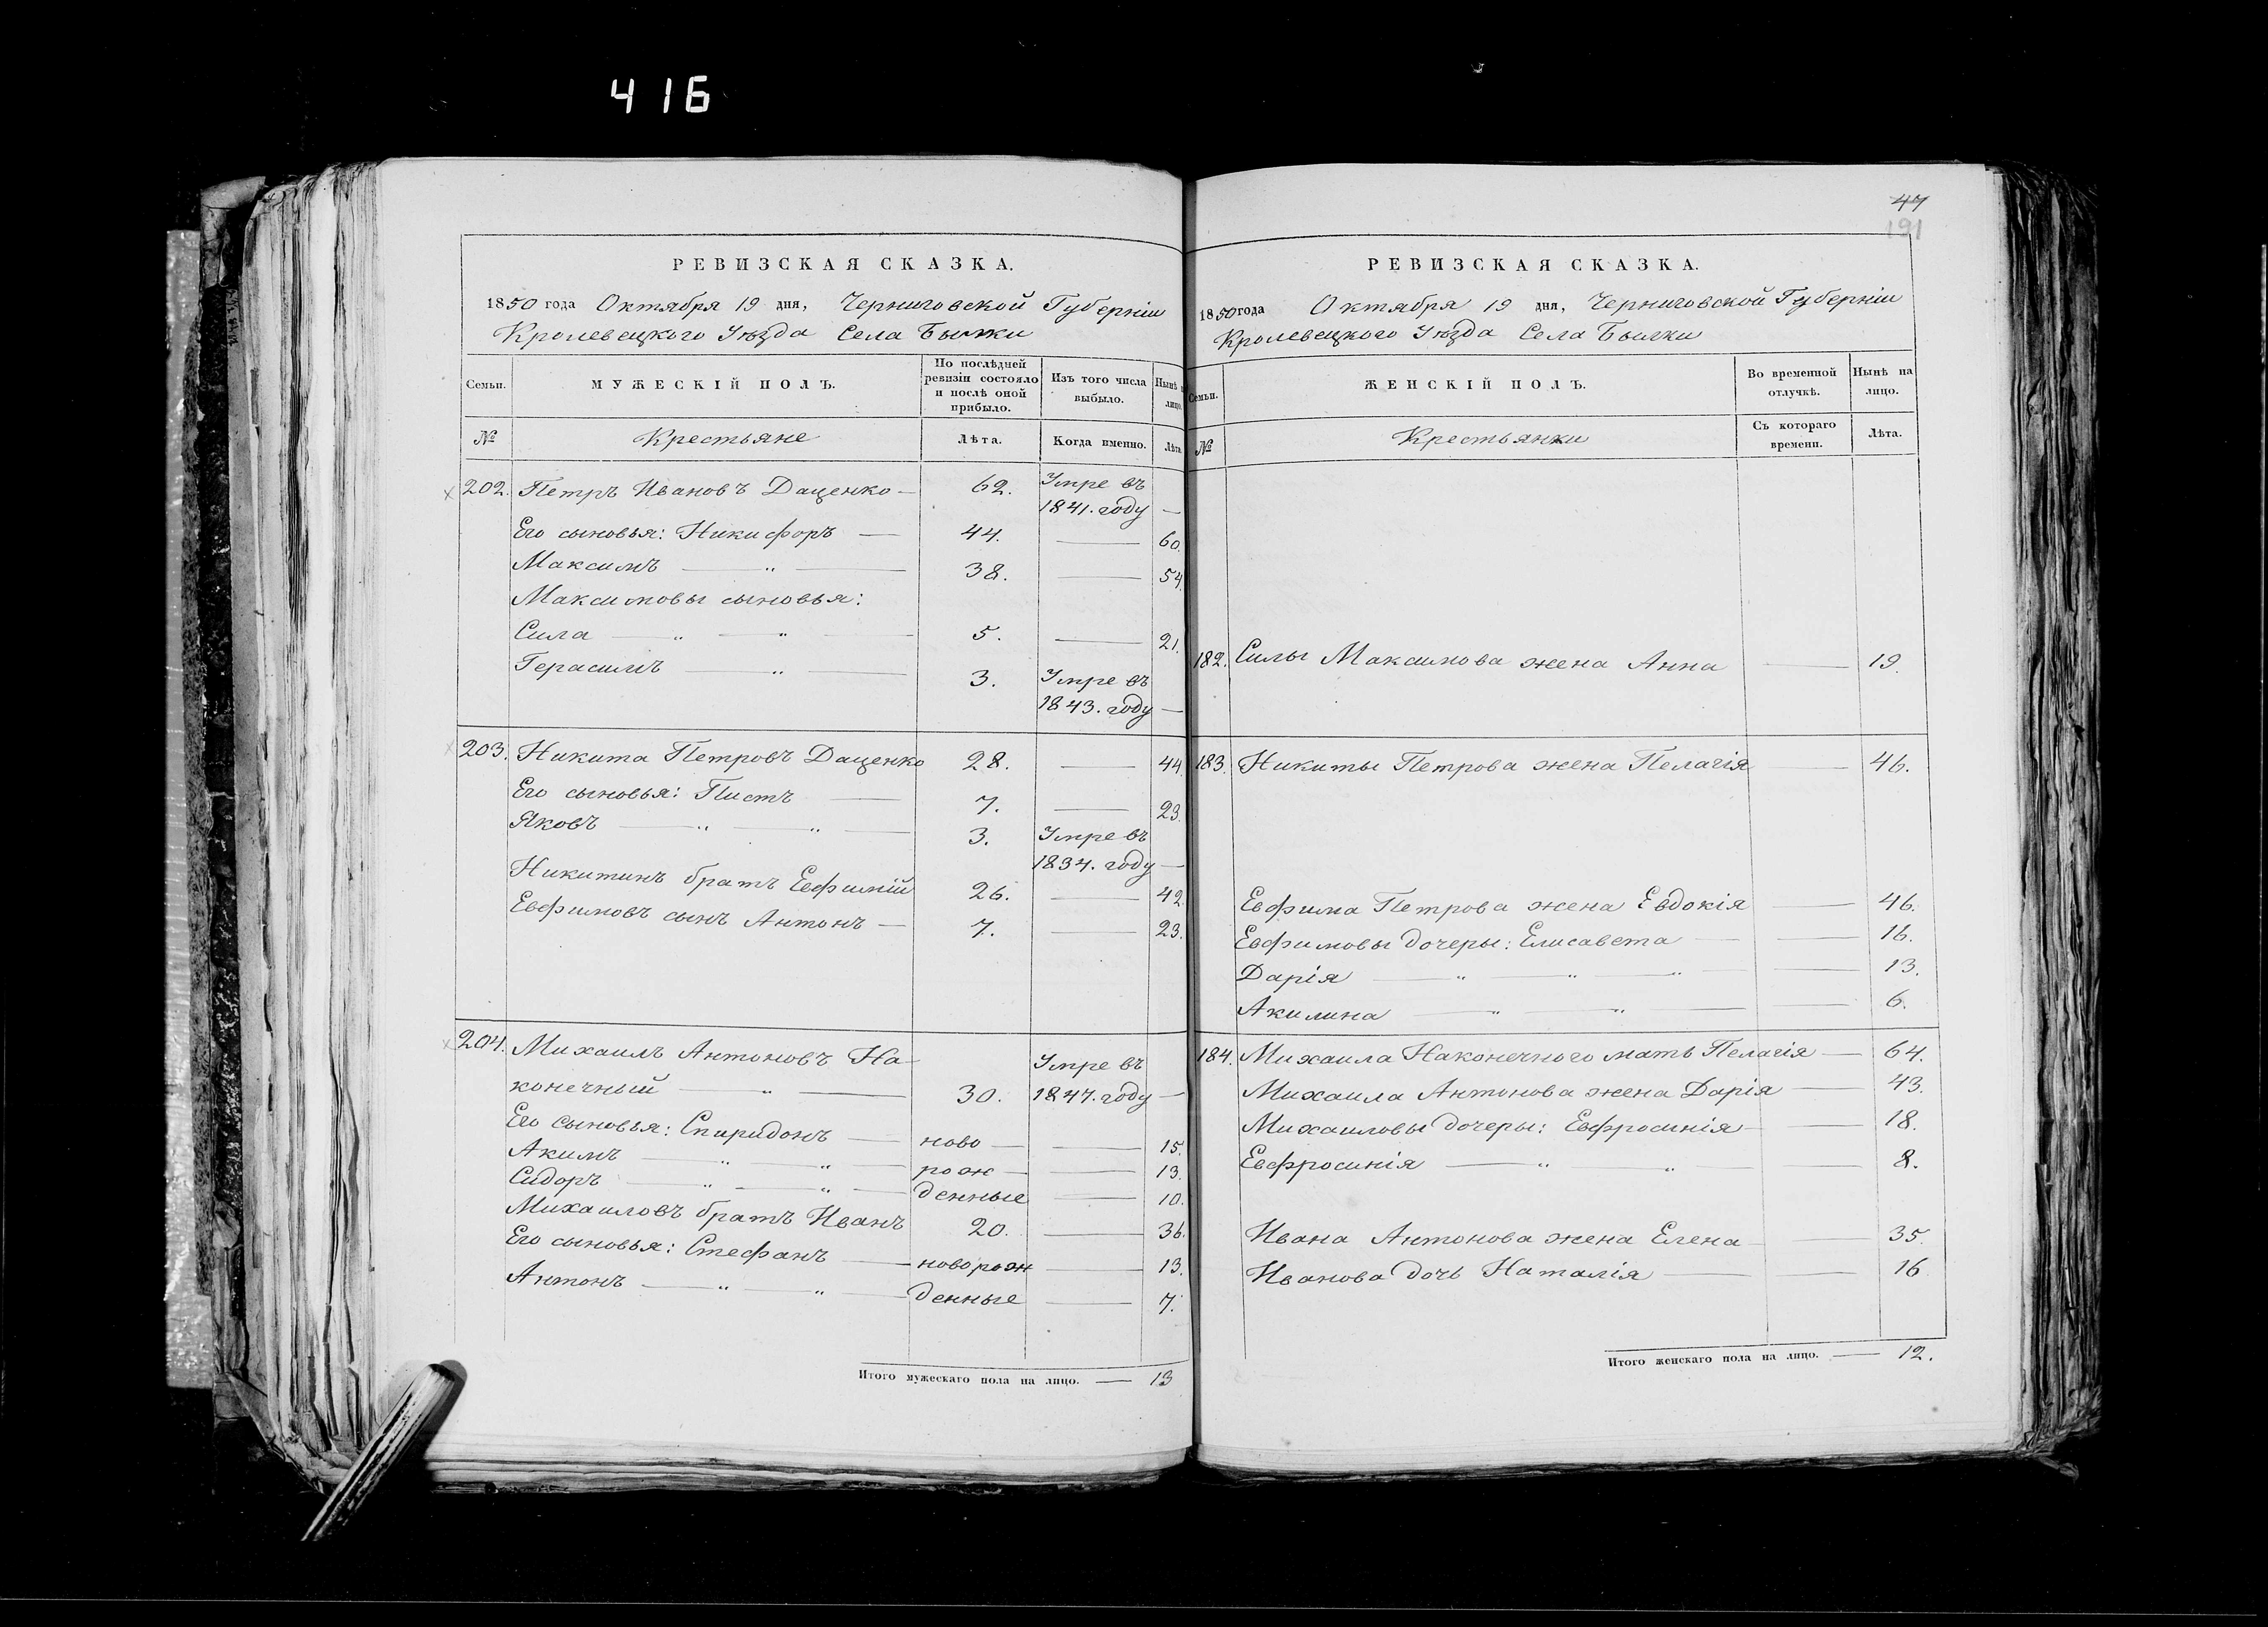 416
РЕВИЗСКАЯ СКАЗКА.
1850 года Октября 19 дня, Черниговской Губерніи
Кролевецкого Уѣзда Села Былки
Семьи.
МУЖЕСКІЙ ПОЛЪ.
По послѣдней ревизіи состояло и послѣ оной прибыло.
Изъ того числа выбыло.
Нынѣ лицо.
№
Крестьяне
Лѣта.
Когда именно.
Лѣта
202. Петръ Ивановъ Даценко — 62. Умре въ
1841. году —
Его сыновья: Никифоръ — 44. — 60.
Максимъ — „ — 38. — 54.
Максимовы сыновья:
Сила — „ — „ — 5. — 21.
Герасимъ — „ — 3. Умре въ
1843. году —
203. Никита Петровъ Даценко 28. — 44.
Его сыновья: Пистъ — 7. — 23.
Яковъ — „ — „ — 3. Умре въ
1834. году —
Никитинъ братъ Евфимій 26. — 42.
Евфимовъ сынъ Антонъ — 7. — 23.
204. Михаилъ Антоновъ На- Умре въ
конечный — „ — 30. 1847. году —
Его сыновья: Спиридонъ — ново — — 15.
Акимъ — „ — „ — рож — — 13.
Сидоръ — „ — „ — денные — 10.
Михаиловъ братъ Иванъ 20. — 36.
Его сыновья: Стефанъ — новорож — 13.
Антонъ — „ — „ — денные — 7.
Итого мужескаго пола на лицо. — 13
47
191
РЕВИЗСКАЯ СКАЗКА.
1850 года Октября 19 дня, Черниговской Губерніи
Кролевецкого Уѣзда Села Былки
Семьи.
ЖЕНСКІЙ ПОЛЪ.
Во временной отлучкѣ.
Нынѣ на лицо.
№
Крестьянки
Съ котораго времени.
Лѣта.
182. Силы Максимова жена Анна — 19.
183. Никиты Петрова жена Пелагія — 46.
Евфима Петрова жена Евдокія — 46.
Евфимовы дочеры: Елисавета — 16.
Дарія — „ — „ — „ — 13.
Акилина — „ — „ — 6.
184. Михаила Наконечного мать Пелагія — 64.
Михаила Антонова жена Дарія — 43.
Михаиловы дочеры: Евфросинія — 18.
Евфросинія — „ — „ — 8.
Ивана Антонова жена Елена — 35.
Иванова дочь Наталія — 16
Итого женскаго пола на лицо. — 12.